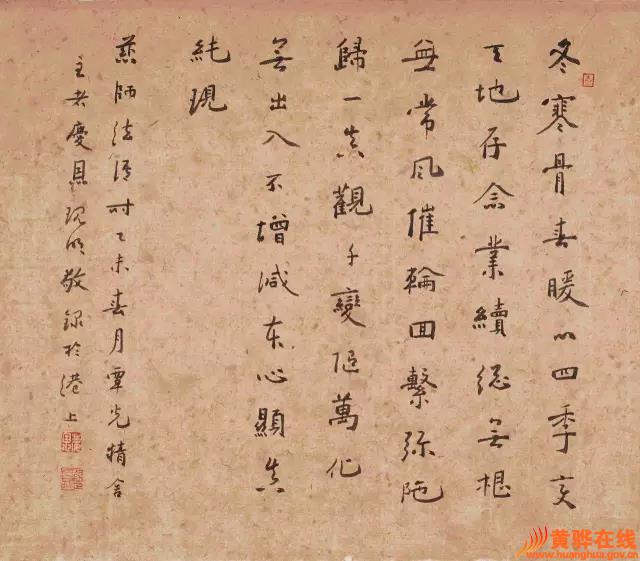 冬寒骨春暖心四季交
天地存念業續總無根
無常風催輪回繫彌陀
歸一真觀千變萬化
無出入不增減本心顯真
純現
慈師法語时乙未春月覃光精舍
主老慶敬録於港上
黄骅在线
www.huanghua.gov.cn